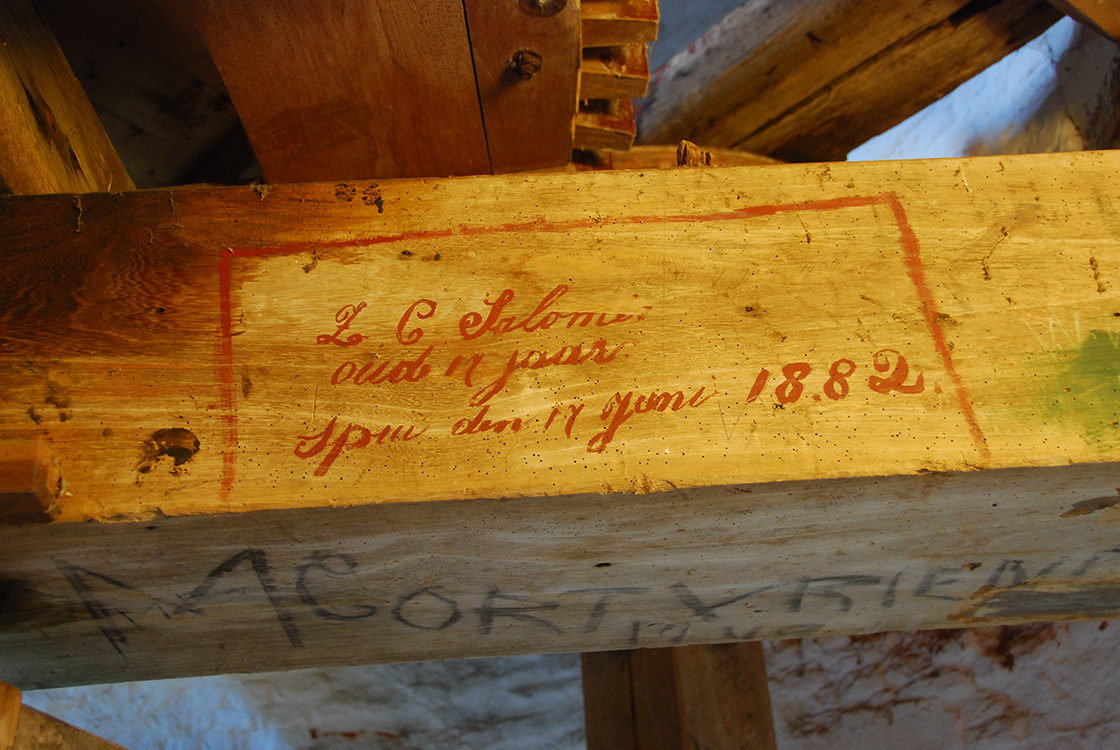 Z. C Salome
oud 17 jaar
Spui den 17 Juni 18.82.
M A C KORTVRIEND